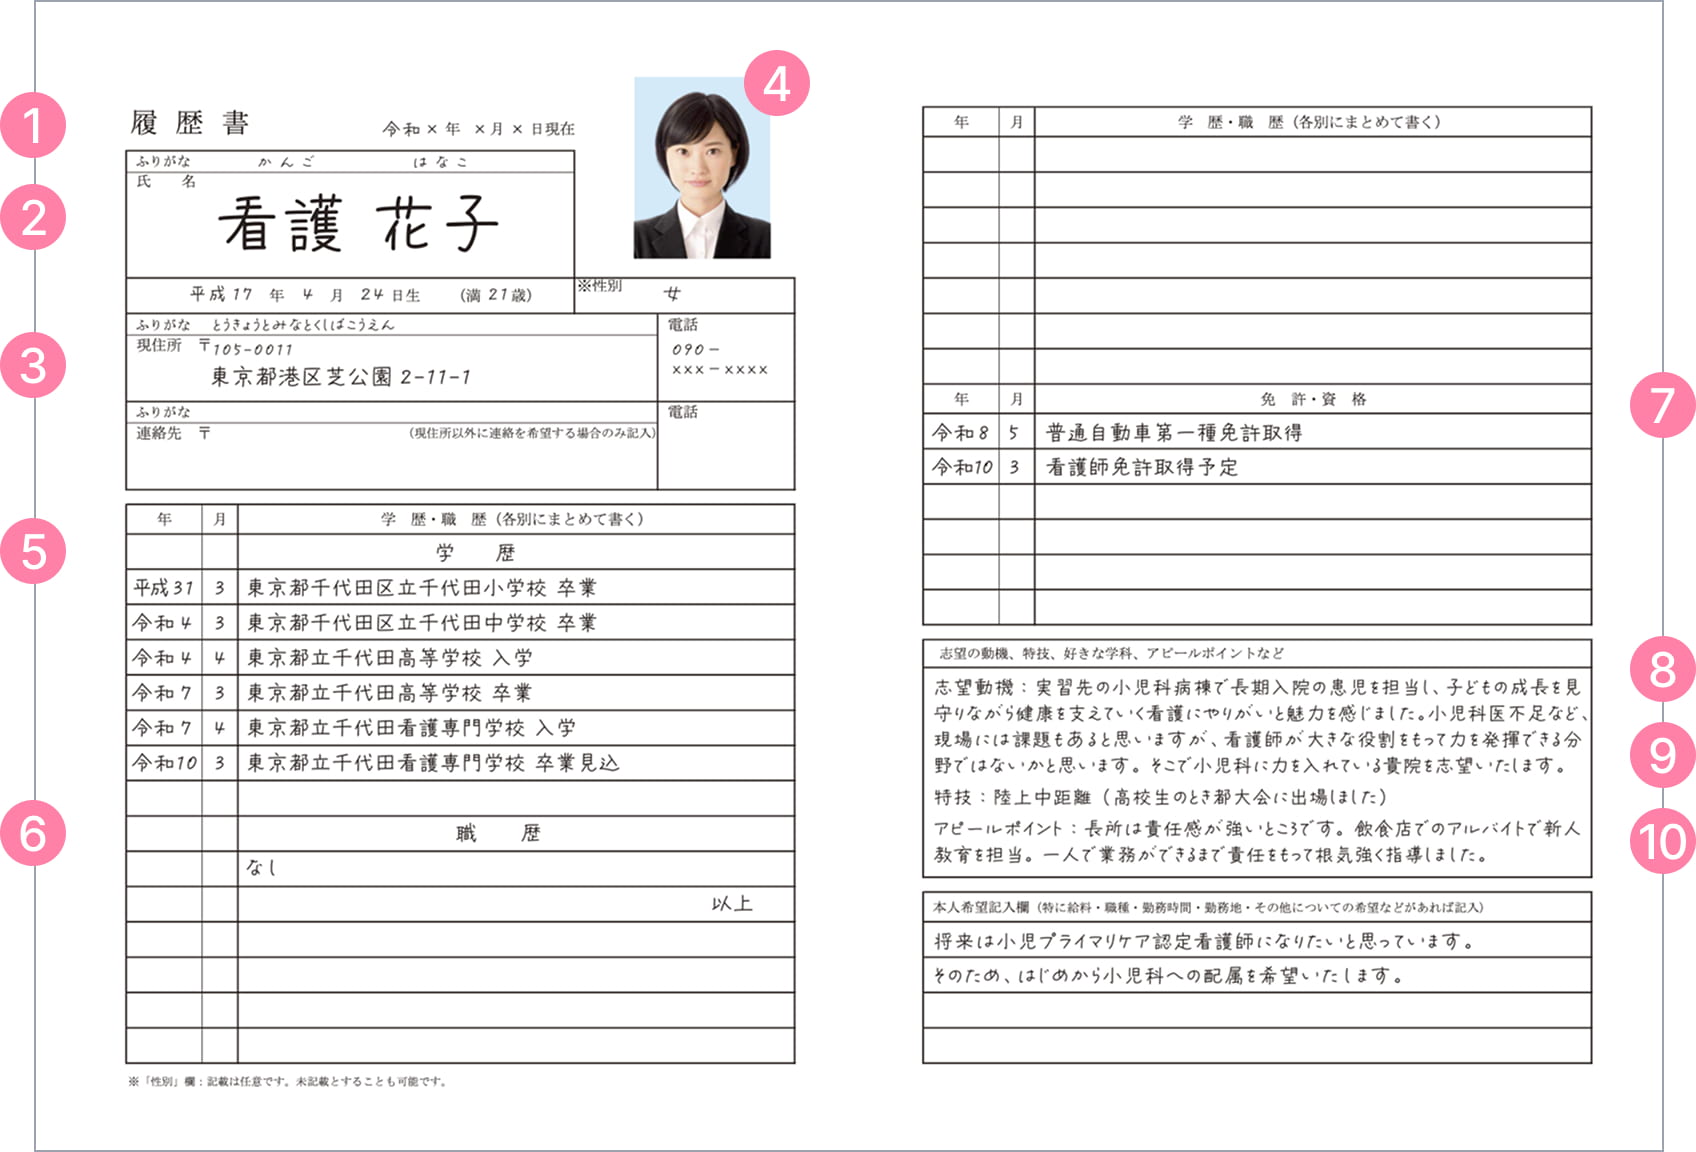 1
履歴書
令和×年 ×月×日現在
4
ふりがな かんご はなこ
2
氏 名
看護 花子
平成17 年 4 月 24日生 (満21歳)
※性別 女
3
ふりがな とうきょうとみなとくしばこうえん
電話
現住所 〒105-0011
090-
東京都港区芝公園2-11-1
×××-××××
ふりがな
電話
連絡先 〒 (現住所以外に連絡を希望する場合のみ記入)
5
年 月 学 歴・職 歴(各別にまとめて書く)
学 歴
平成31 3 東京都千代田区立千代田小学校 卒業
令和4 3 東京都千代田区立千代田中学校 卒業
令和4 4 東京都立千代田高等学校 入学
令和7 3 東京都立千代田高等学校 卒業
令和7 4 東京都立千代田看護専門学校 入学
令和10 3 東京都立千代田看護専門学校 卒業見込
6
職 歴
なし
以上
※「性別」欄:記載は任意です。未記載とすることも可能です。
年 月 学 歴・職 歴(各別にまとめて書く)
7
年 月 免 許・資 格
令和8 5 普通自動車第一種免許取得
令和10 3 看護師免許取得予定
8
志望の動機、特技、好きな学科、アピールポイントなど
志望動機:実習先の小児科病棟で長期入院の患児を担当し、子どもの成長を見
守りながら健康を支えていく看護にやりがいと魅力を感じました。小児科医不足など、
現場には課題もあると思いますが、看護師が大きな役割をもって力を発揮できる分
9
野ではないかと思います。そこで小児科に力を入れている貴院を志望いたします。
特技:陸上中距離(高校生のとき都大会に出場しました)
アピールポイント:長所は責任感が強いところです。飲食店でのアルバイトで新人
10
教育を担当。一人で業務ができるまで責任をもって根気強く指導しました。
本人希望記入欄(特に給料・職種・勤務時間・勤務地・その他についての希望などがあれば記入)
将来は小児プライマリケア認定看護師になりたいと思っています。
そのため、はじめから小児科への配属を希望いたします。